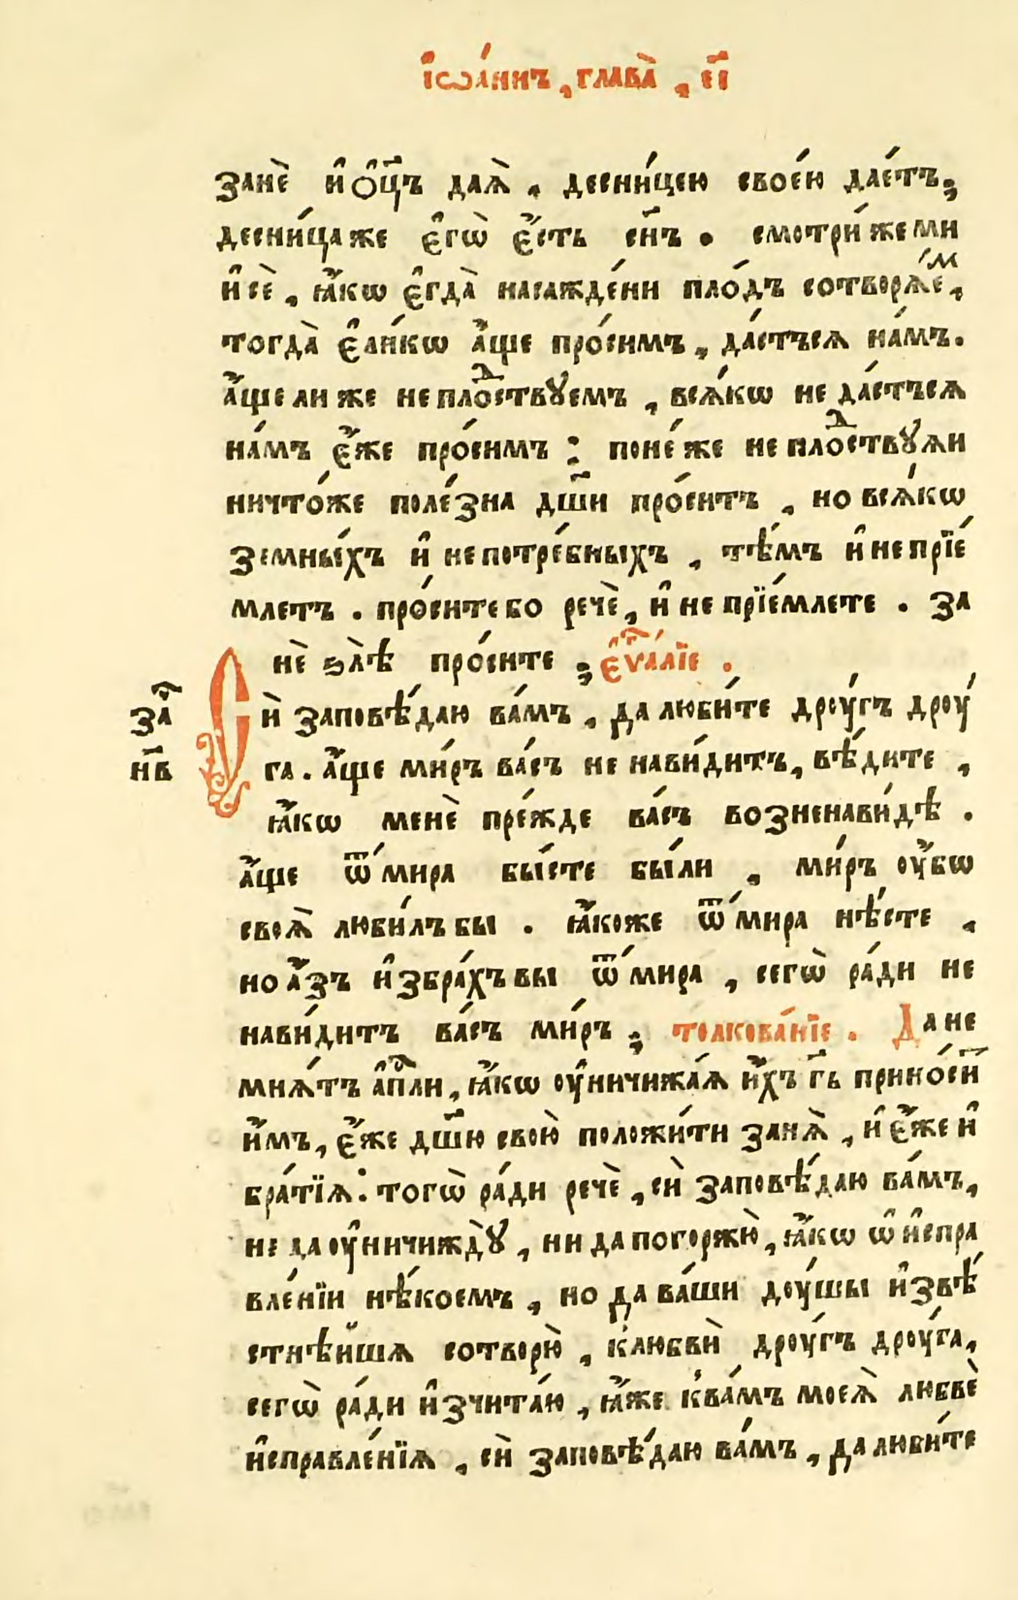 і҆ѡа́ннъ, глава̀, е҃і
занѐ и҆ ѻ҆ц҃ъ дая̀, десни́цею свое́ю дае́тъ;
десни́цаже є҆гѡ̀ є҆́сть сн҃ъ. смотри́ жеми
и҆ сѐ, ꙗ҆́кѡ є҆гда̀ насажде́ни пло́дъ сотворѧ́еⷨ,
тогда̀ є҆ли́кѡ а҆́ще про́симъ, да́стъсѧ на́мъ.
а҆́ще ли же не плоⷣствꙋемъ, всѧ́кѡ не да́стъсѧ
на́мъ є҆́же про́симъ: поне́же не плоⷣствꙋѧи
ничто́же поле́зна дш҃и про́ситъ, но всѧ́кѡ
земны́хъ и҆ непотре́бныхъ, тѣ́мъ и҆ не прїе́
млетъ. про́ситебо речѐ, и҆ не прїе́млете. за
нѐ ѕлѣ̀ про́сите; є҆ѵⷢ҇а́лїе.
Сїѝ заповѣ́даю ва́мъ, да люби́те дрꙋ́гъ дрꙋ́
за́ⷱ
н҃в
га. а҆́ще ми́ръ ва́съ не нави́дитъ, вѣ́дите,
ꙗ҆́кѡ менѐ пре́жде ва́съ возненави́дѣ.
а҆́ще ѿ ми́ра бы́сте бы́ли, ми́ръ ᲂу҆́бѡ
своѧ̀ люби́лъ бы. ꙗ҆́коже ѿ ми́ра нѣ́сте,
но а҆́зъ и҆збра́хъ вы ѿ ми́ра, сегѡ̀ ра́ди не
нави́дитъ ва́съ ми́ръ; толкова́нїе. Да не
мнѧ́тъ а҆пⷭ҇ли, ꙗ҆́кѡ ᲂу҆ничижа́ѧ и҆́хъ гд҇ь прино́сиⷮ
и҆́мъ, є҆́же дш҃ю свою̀ положи́ти занѧ̀, и҆ є҆́же и҆
бра́тїѧ: тогѡ̀ ра́ди речѐ, сїѝ заповѣ́даю ва́мъ,
не да ᲂу҆ничиждꙋ̀, ни да погоржю̀, ꙗ҆́кѡ ѡ҆ и҆спра
вле́нїи нѣ́коемъ, но да ва́ши дꙋ́шы и҆звѣ́
стнѣ́йшѧ сотворю̀, к҆любвѝ дрꙋ́гъ дрꙋ́га,
сегѡ̀ ра́ди и҆зчита́ю, ꙗ҆́же к҆ва́мъ моеѧ̀ любвѐ
и҆справле́нїѧ, сїѝ заповѣ́даю ва́мъ, да люби́те